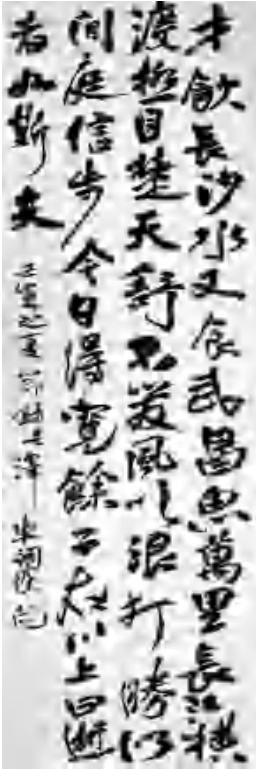 才飲長沙水又食武昌魚萬里長江橫
渡極目楚天舒不管風吹浪打勝似
閒庭信步今日得寬餘子在川上曰逝
者如斯夫
澤東詞